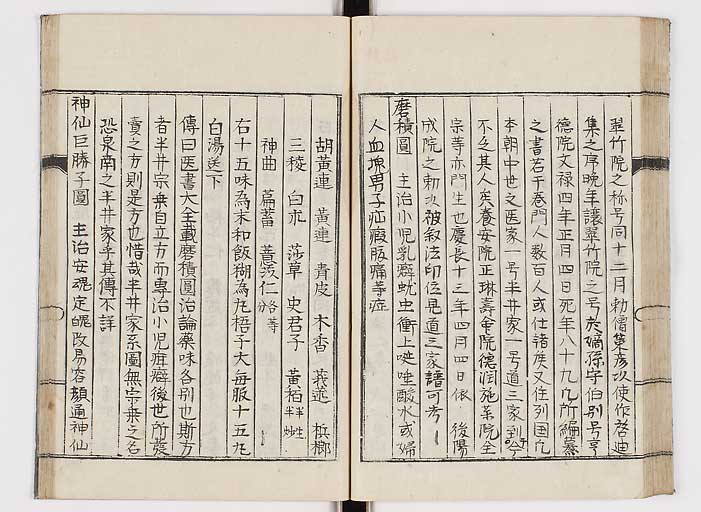 翠竹院之称号同十二月勅僧策彦以使作啓迪
集之序晩年譲翠竹院之号於嫡孫字伯別号亨
德院文禄四年正月四日死年八十九凢所編纂
之書若干巻門人数百人或仕諸侯又住列国凢
本朝中世之医家一号半井家一号道三家到于今
不乏其人矣養安院正琳壽命院德潤施薬院全
宗等亦門生也慶長十三年四月四日依 後陽
成院之勅以被叙法印位見道三家譜可考
磨積圓 主治小児乳癖蚘虫衝上唾酸水或婦
人血塊男子疝瘕脹痛等症
胡黄連 黄連 青皮 木香 莪朮 梹榔
三稜 白朮 莎草 史君子 黄栢半生半炒
神曲 萹蓄 薏苡仁各等
右十五味為末和飯糊為丸梧子大毎服十五丸
白湯送下
傳曰医書大全載磨積圓治論藥味各別也斯方
者半井宗乗自立方而専治小児疳癖後世所發
賣之方則是方也惜哉半井家系圖無宗乗之名
恐泉南之半井家乎其傳不詳
神仙巨勝子圓 主治安魂定魄改易容顔通神仙